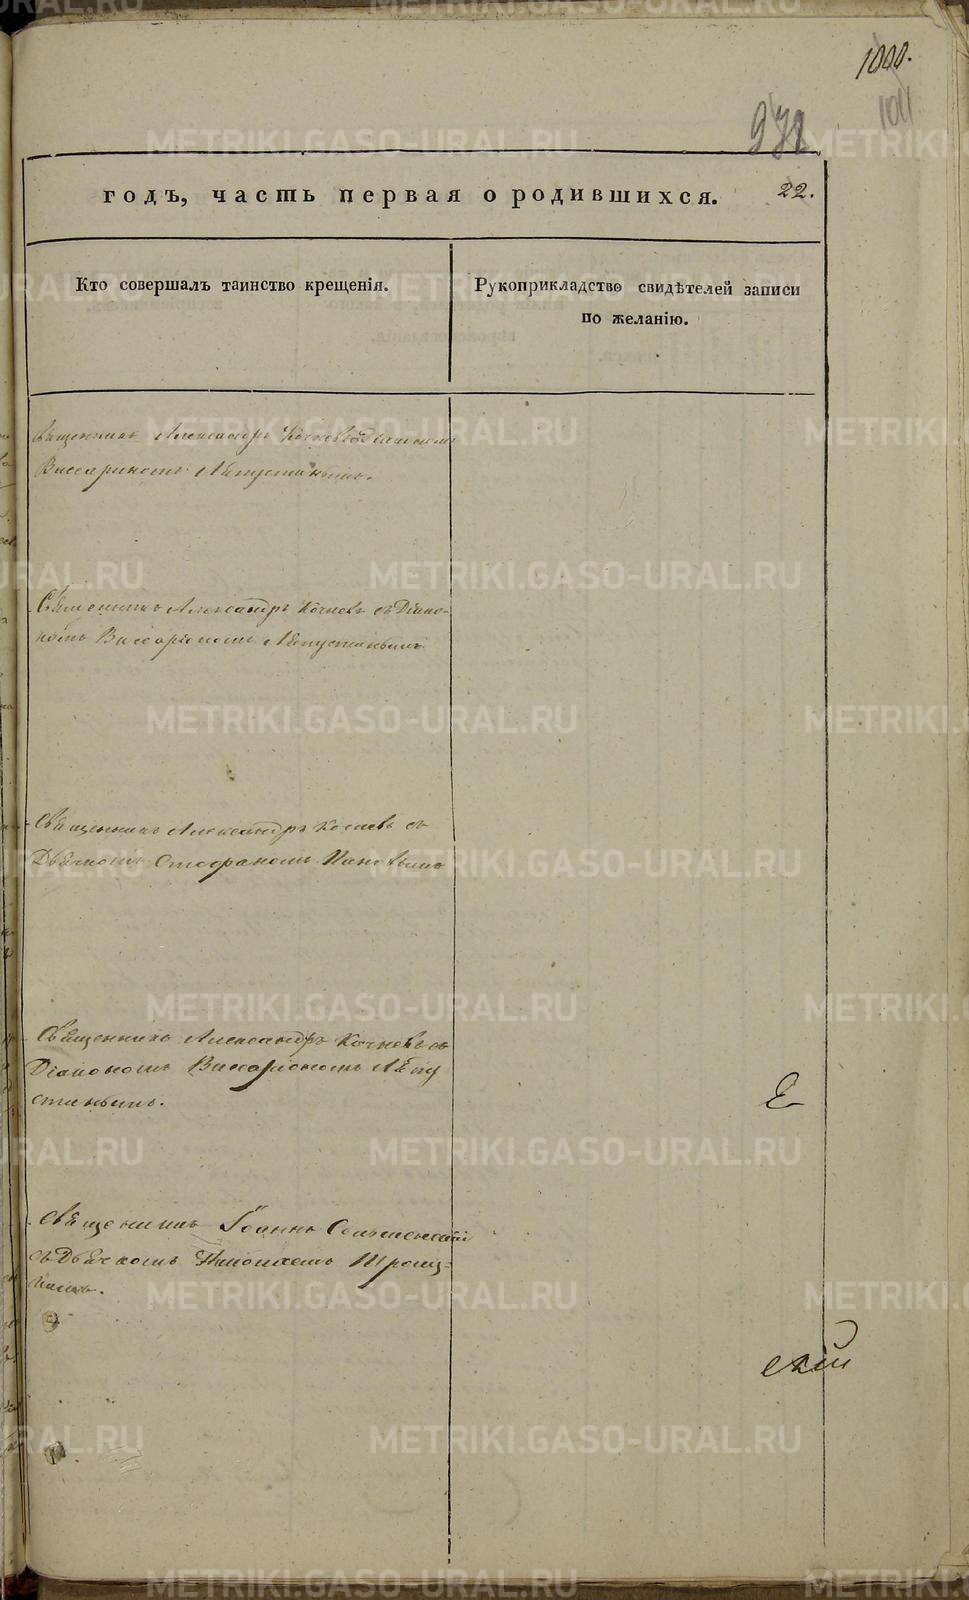 1000.
1011
978
годъ, часть первая о родившихся. 22.
Кто совершалъ таинство крещенія.
Рукоприкладство свидѣтелей записи
по желанію.
Священникъ Александръ Кочневъ съ Діакономъ
Виссаріономъ Лѣпустинымъ.
Священникъ Александръ Кочневъ съ Діако-
номъ Виссаріономъ Лѣпустинымъ
Священникъ Александръ Кочневъ съ
Дьячкомъ Стефаномъ Поповымъ
Священникъ Александръ Кочневъ съ
Діакономъ Виссаріономъ Лѣпу
стинымъ.
Священникъ Іоаннъ
съ Дьячкомъ Николаемъ
скій
METRIKI.GASO-URAL.RU